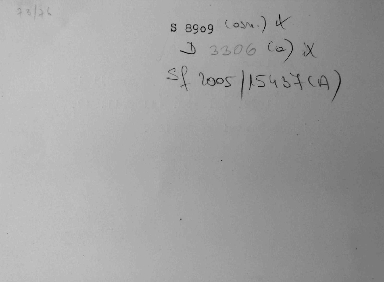 S 8909 (osn.) X
D 3306 (a) X
Sf 2005/15437 (A)